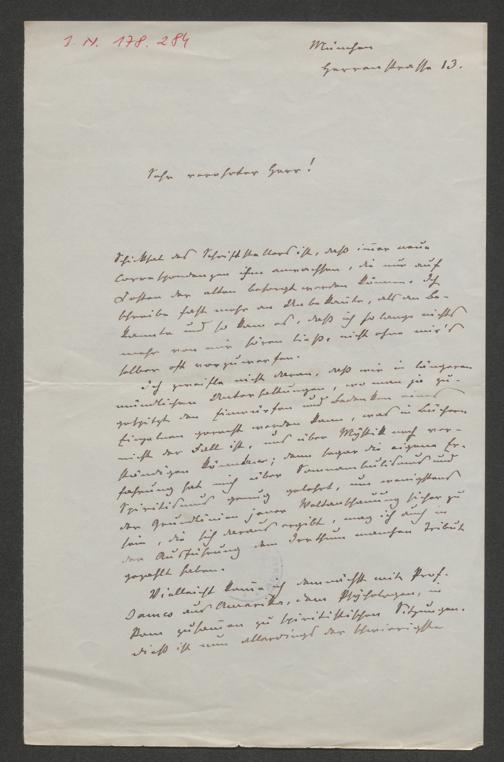 I. N. 178.284
München
Herrenstrasse 13.
Sehr verehrter Herr!
Schicksal des Schriftstellers ist, daß immer neue
Correspondenzen ihm anwachsen, die nur auf
Kosten der alten besorgt werden können. Ich
schreibe fast mehr an Unbekannte, als an Be-
kannte und so kam es, daß ich so lange nichts
mehr von mir hören ließ, nicht ohne mir's
selber oft vorzuwerfen.
Ich zweifle nicht daran, daß wir in längeren
mündlichen Unterhaltungen, wo man ja zu-
gespitzt den Einwürfen und Bedenken eines
Einzelnen gerecht werden kann, was in Büchern
nicht der Fall ist, uns über Mystik noch ver-
ständigen könnten; denn sogar die eigene Er-
fahrung hat mich über Somnambulismus und
Spiritismus genug gelehrt, um wenigstens
der Grundlinien jener Weltanschauung sicher zu
sein, die sich daraus ergibt, mag ich auch in
der Ausführung dem Irrthum manchen Tribut
gezahlt haben.
Vielleicht komme ich demnächst mit Prof.
James aus Amerika, dem Psychologen, in
Rom zusammen zu spiritistischen Sitzungen.
Dieß ist nun allerdings der schwierigste